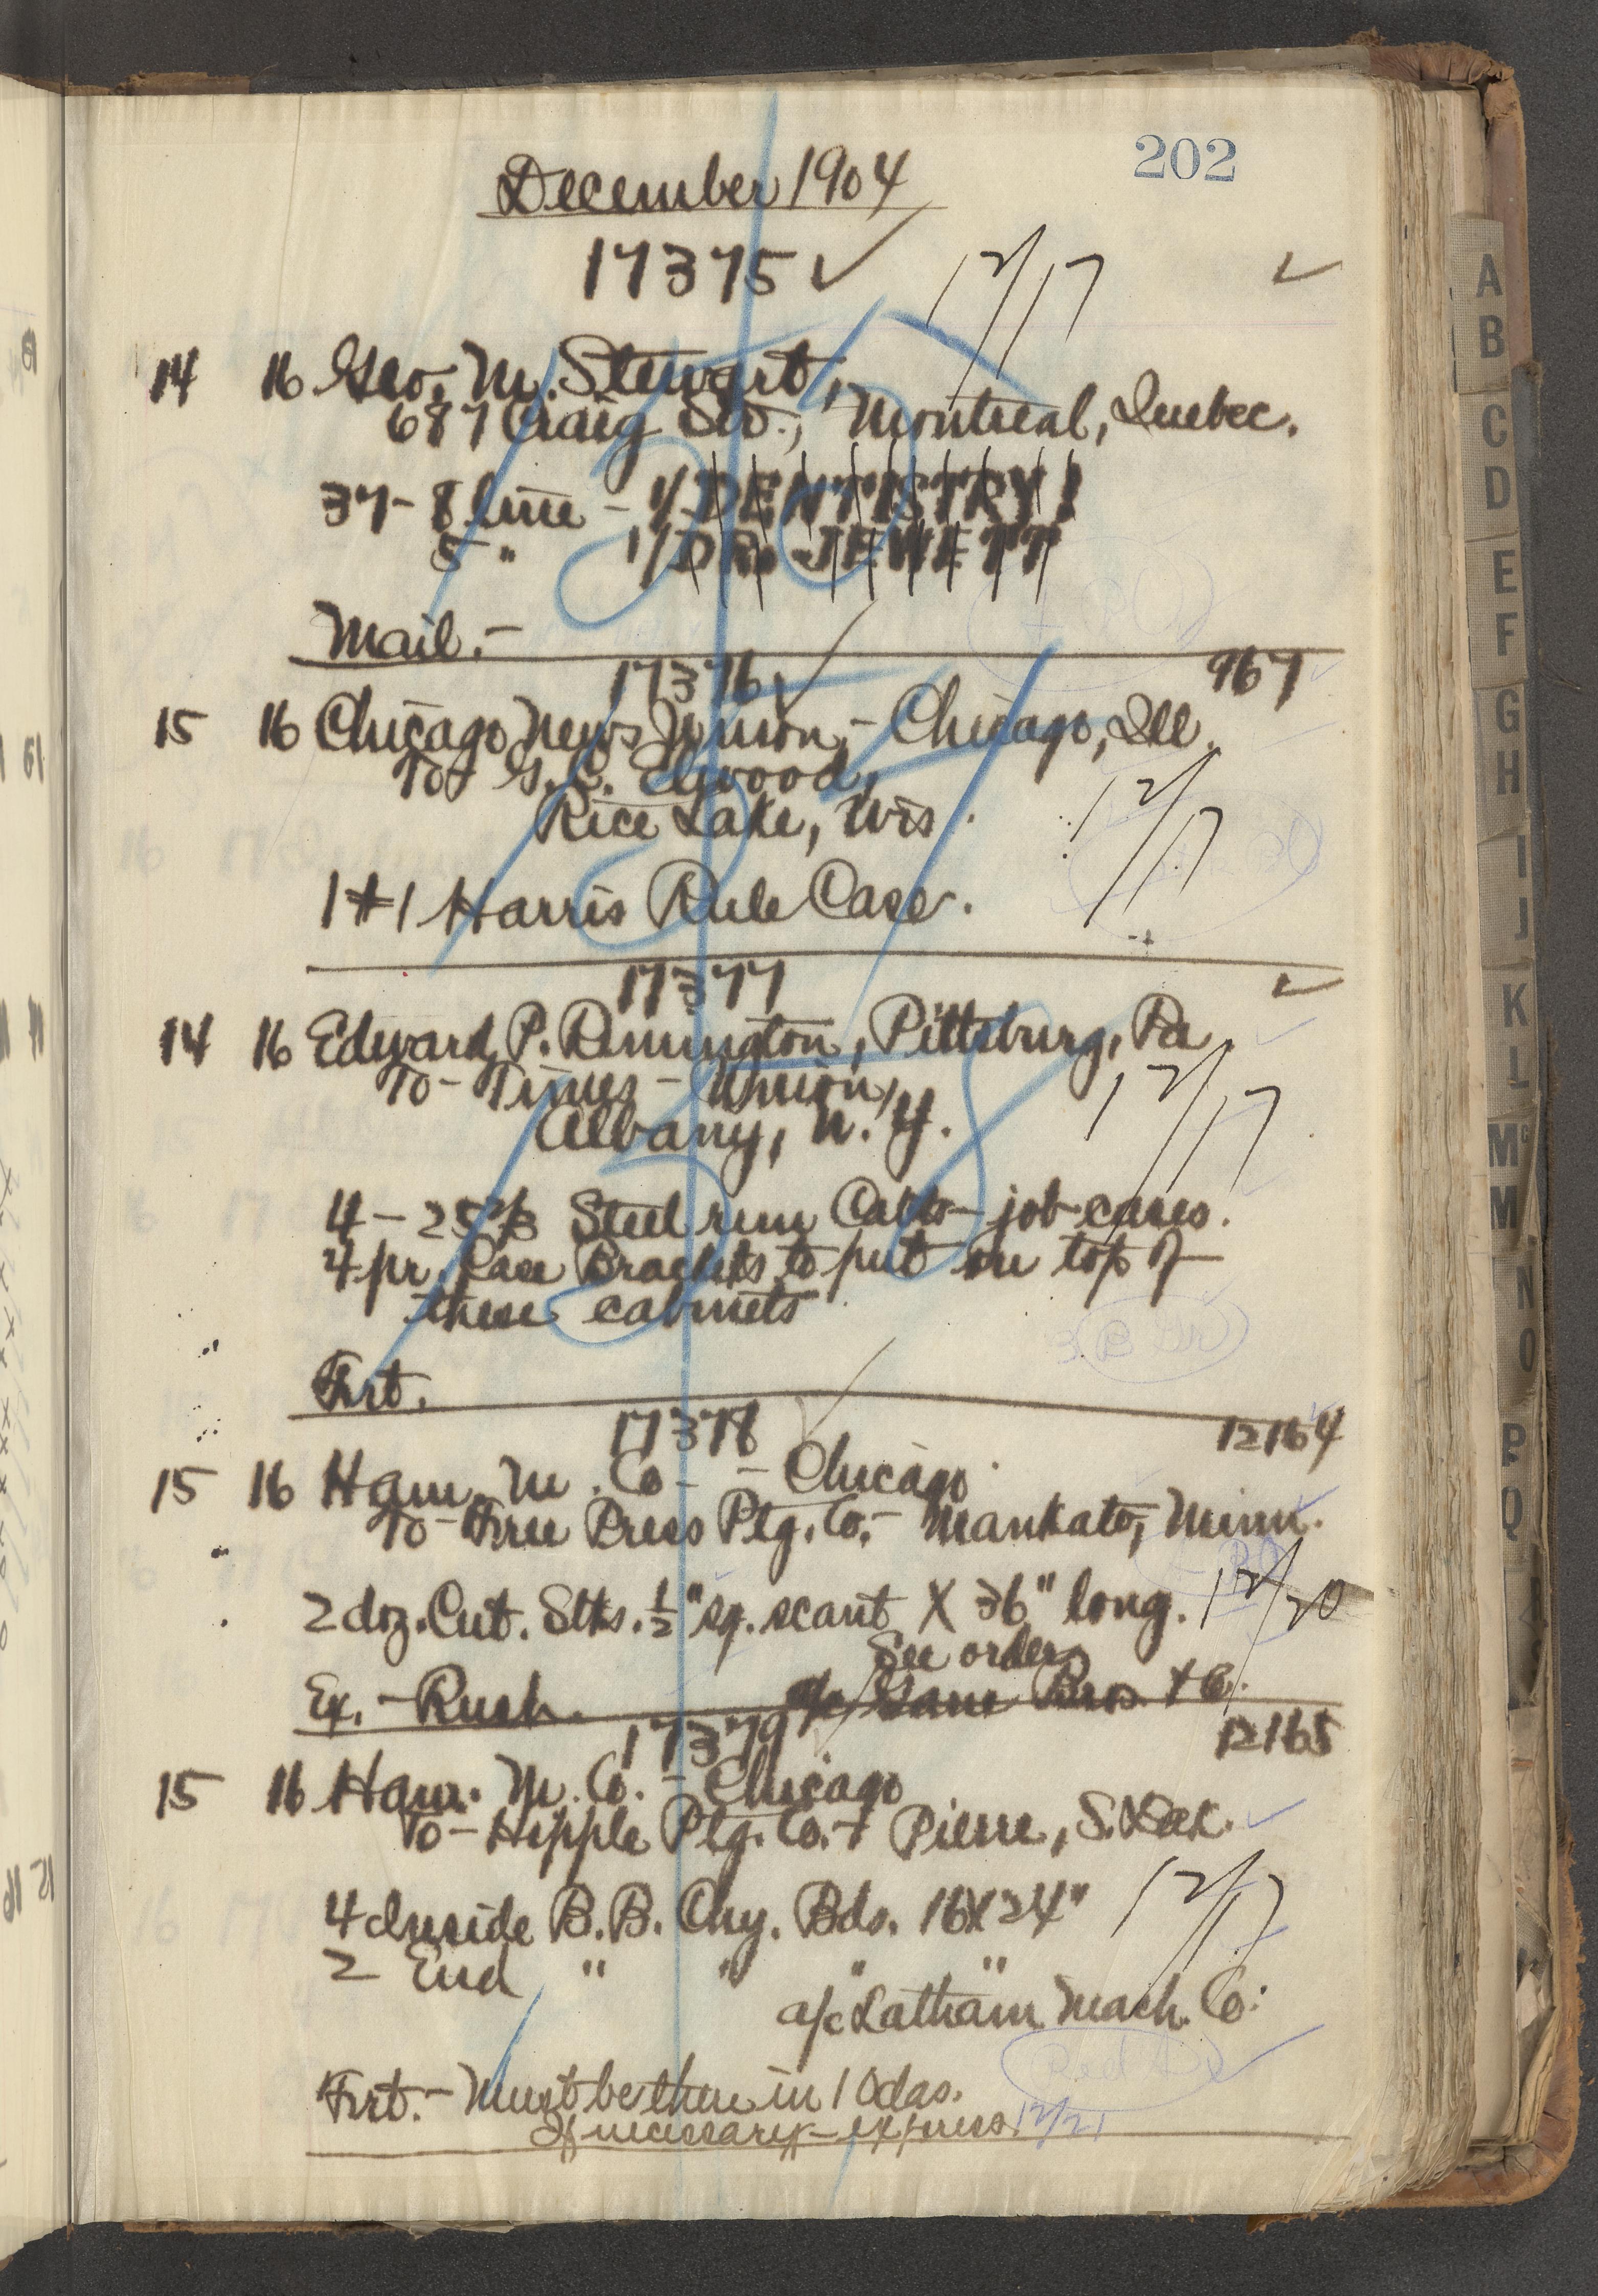 202
December 1904
17375 ✓ 12/17 ✓
14 16 Geo. M. Stewart,
687 Craig St., Montreal, Quebec.
37 - 8 line - 1/DENTISTRY
5 " 1/DR. JEWETT
Mail.-
17376 967
15 16 Chicago News Union, - Chicago, Ill.
To G. E. Elwood,
Rice Lake, Wis.
12/17
1 #1 Harris Rule Case.
17377 ✓
14 16 Edward P. Remington, Pittsburg, Pa.
To - Times - Union,
Albany, N. Y.
12/17
4 - 25 2/3 Steel run Cabts - job cases.
4 pr. Case Brackets to put on top of
these cabinets
Frt.
17378 12164
15 16 Ham. M. Co. - Chicago
To - Free Press Ptg. Co. - Mankato, Minn.
2 doz. Cut. Stks. 1/2" sq. scant X 36" long. 12/20
See order
Ex. - Rush. a/c Gane Bros. + Co.
17379 12165
15 16 Ham. M. Co. - Chicago
To - Hipple Ptg. Co. - Pierre, S. Dak.
4 Inside B. B. Chy. Bds. 16X24" 12/17
2 End " " " "
a/c Latham Mach. Co.
Frt. - Must be there in 10 das.
If necessary - express. 12/21
A
B
C
D
E
F
G
H
I
J
K
L
Mc
M
N
O
P
Q